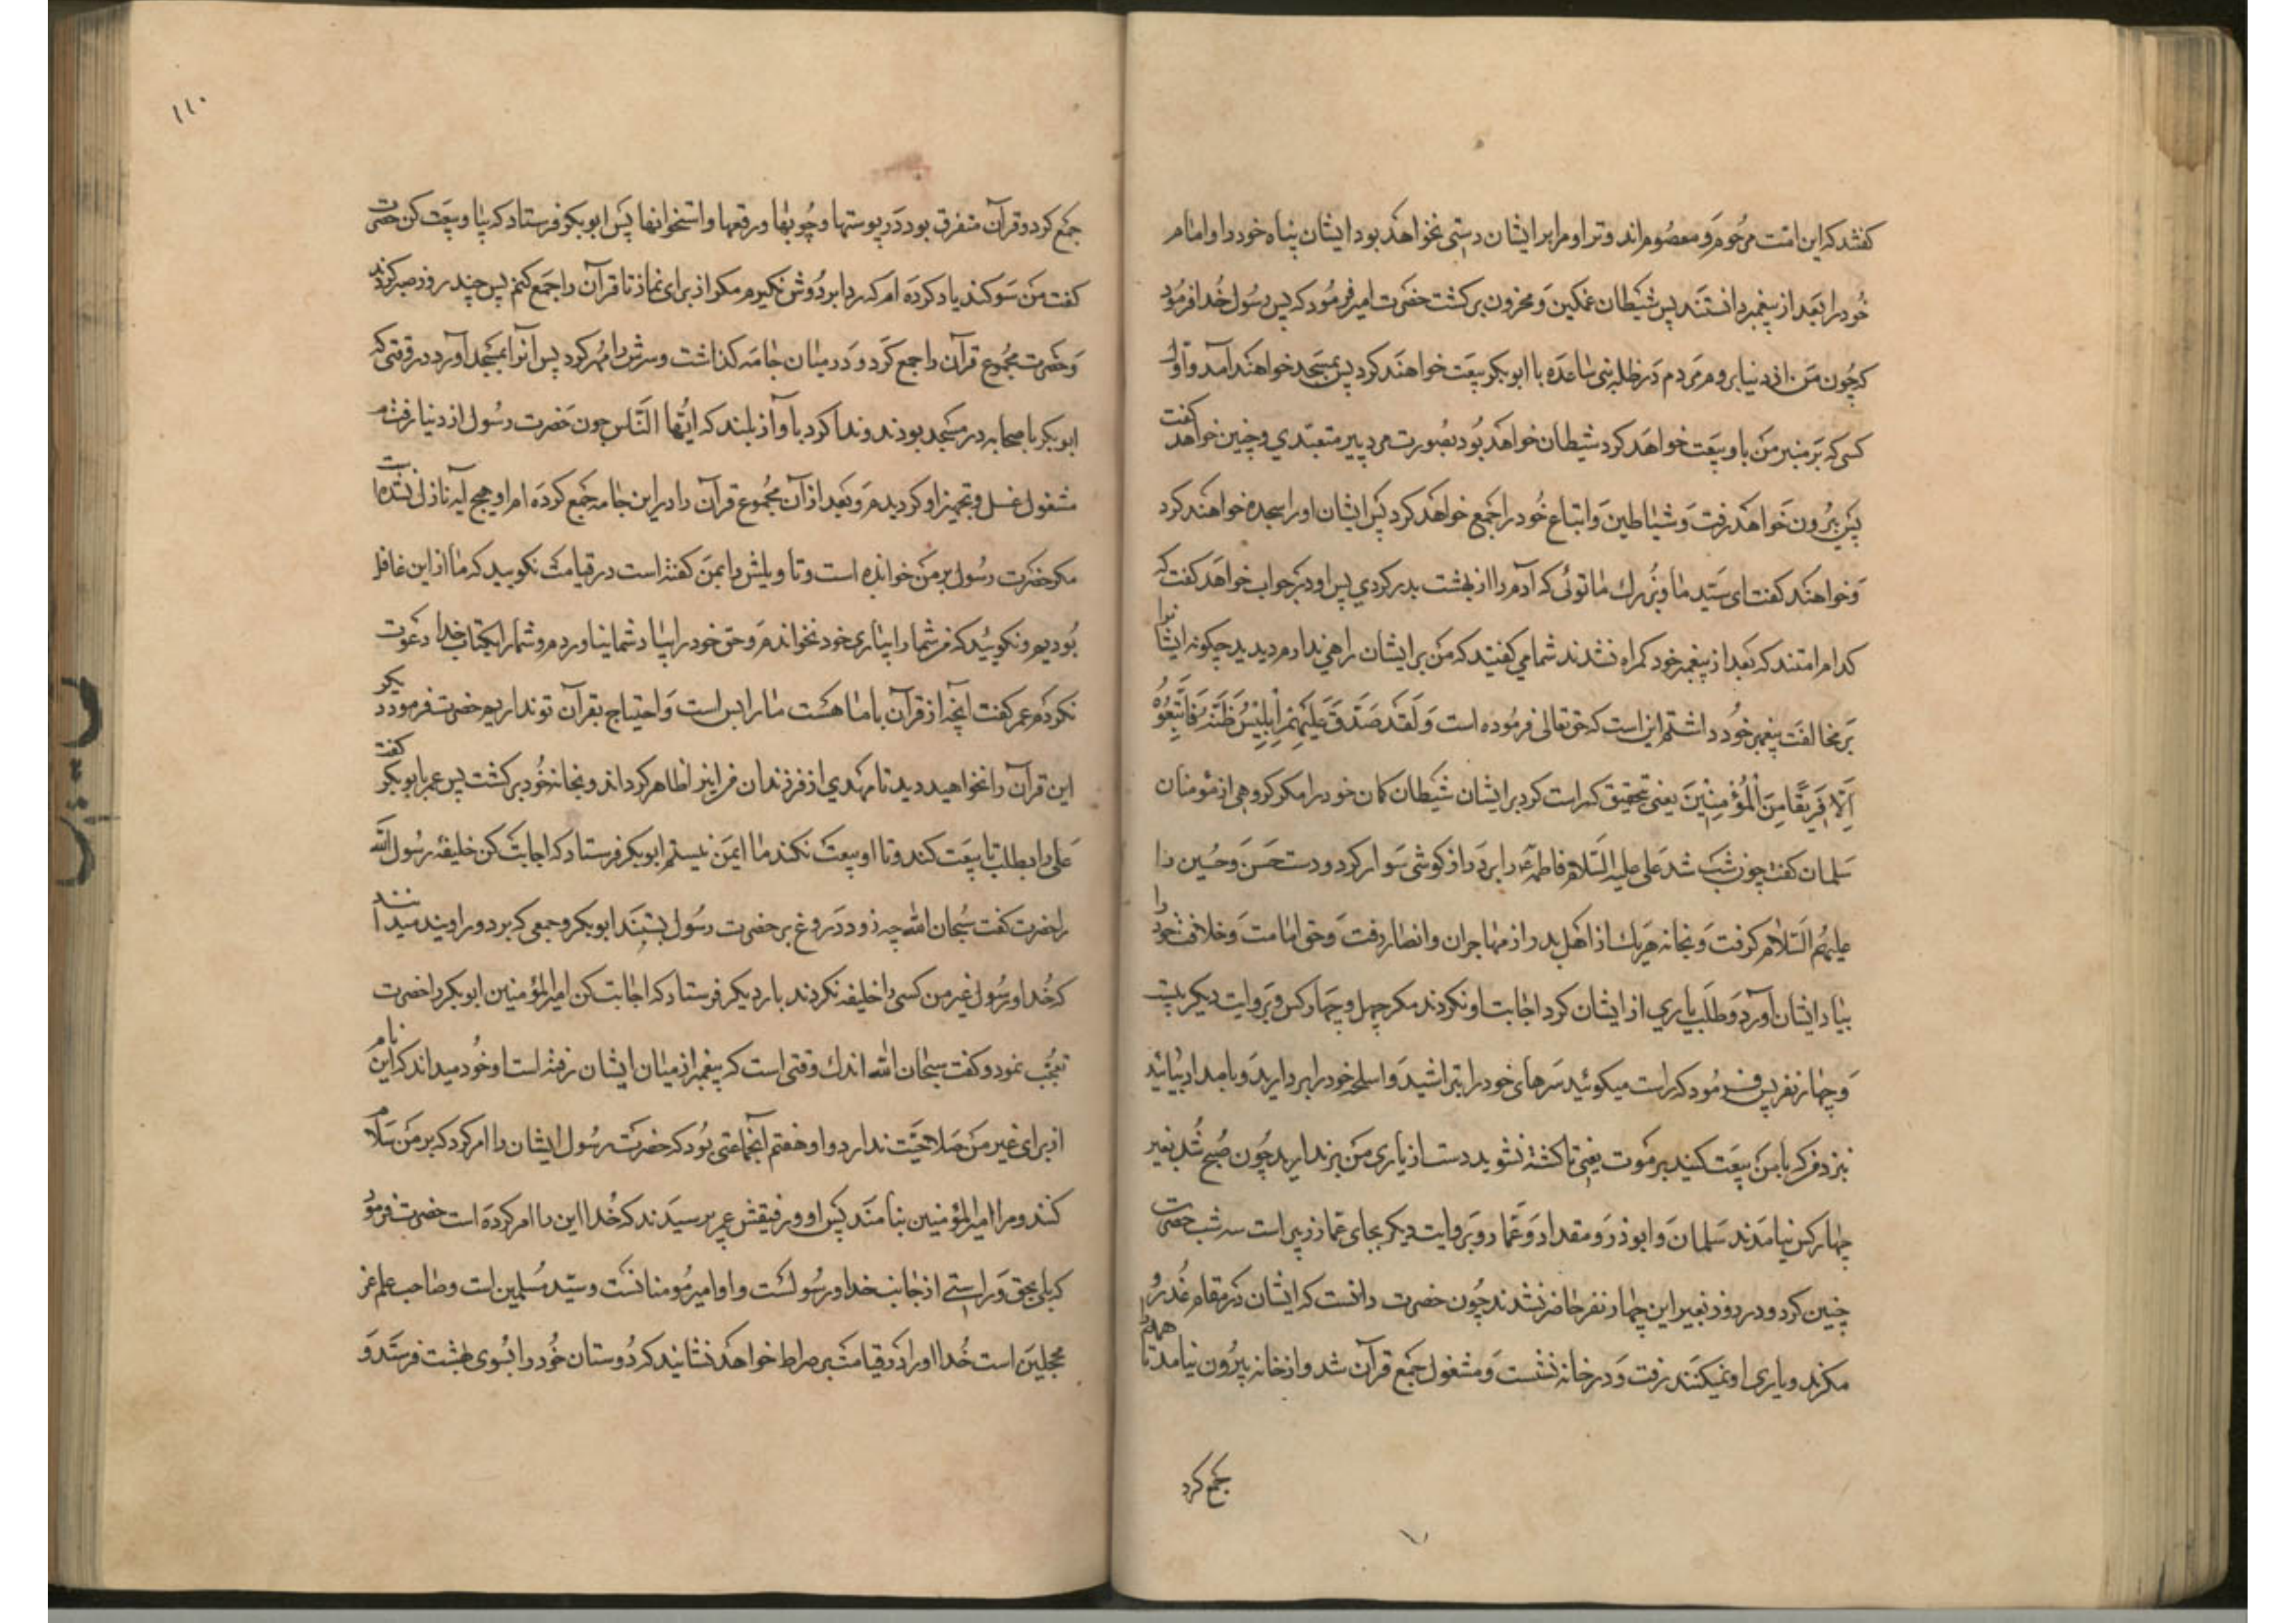 گفتند که این امت مرحوم و معصوم‌اند و ترا و مرا بر ایشان دستی نخواهد بود ایشان پناه خود را و امام
خود را بعد از پیغمبر دانستند پس شیطان غمگین و محزون برگشت حضرت امیر فرمود که پس رسول خدا فرمود
که چون من از دنیا بروم مردم در ظله بنی ساعده با ابوبکر بیعت خواهند کرد پس بمسجد خواهند آمد و اول
کسی که بر منبر من باو بیعت خواهد کرد شیطان خواهد بود بصورت مرد پیر متعبدی و چنین خواهد گفت
پس بیرون خواهد رفت و شیاطین و اتباع خود را جمع خواهد کرد پس ایشان او را سجده خواهند کرد
و خواهند گفت ای سید ما و بزرك ما توئی که آدم را از بهشت بدر کردی پس او در جواب خواهد گفت که
کدام امتند که بعد از پیغمبر خود گمراه نشدند شما می گفتید که من بر ایشان راهی ندارم دیدید چگونه ایشانرا
بر مخالفت پیغمبر خود داشتم این است که حق تعالی فرموده است وَلَقَدْ صَدَّقَ عَلَيْهِمْ إِبْلِيسُ ظَنَّهُ فَاتَّبَعُوهُ
إِلَّا فَرِيقًا مِنَ الْمُؤْمِنِينَ یعنی بتحقیق که راست کرد بر ایشان شیطان گمان خود را مگر گروهی از مؤمنان
سلمان گفت چون شب شد علی علیه السلام فاطمه ع را بر دراز گوشی سوار کرد و دست حسن و حسین را
علیهم السلام گرفت و بخانه هر یك از اهل بدر از مهاجران و انصار رفت و حق امامت و خلافت خود را
بیاد ایشان آورد و طلب یاری از ایشان کرد اجابت او نکردند مگر چهل و چهار کس و بروایت دیگر بیست
و چهار نفر پس فرمود که راست میگوئید سرهای خود را بتراشید و اسلحه خود را بردارید و بامداد بیائید
بنزد من که با من بیعت کنید بر موت یعنی تا کشته نشوید دست از یاری من برندارید چون صبح شد بغیر
چهار کس نیامدند سلمان و ابوذر و مقداد و عمار و بروایت دیگر بجای عمار زبیر است سه شب حضرت
چنین کرد و در روز بغیر این چهار نفر حاضر نشدند چون حضرت دانست که ایشان در مقام غدر و
مکرند و یاری او نمیکنند برفت و در خانه نشست و مشغول جمع قرآن شد و از خانه بیرون نیامد تا همه را
جمع کرد
۱۱۰
جمع کرد و قرآن متفرق بود در پوستها و چوبها و رقعها و استخوانها پس ابوبکر فرستاد که بیا و بیعت کن حضرت
گفت من سوگند یاد کرده ام که ردا بر دوش نگیرم مگر از برای نماز تا قرآن را جمع کنم پس چند روز صبر کردند
و حضرت مجموع قرآن را جمع کرد و در میان جامه گذاشت و سرش را مهر کرد پس آنرا بمسجد آورد در وقتی که
ابوبکر با صحابه در مسجد بودند و ندا کرد بآواز بلند که ایها الناس چون حضرت رسول از دنیا رفت
مشغول غسل و تجهیز او گردیدم و بعد از آن مجموع قرآن را در این جامه جمع کرده ام و هیچ آیه نازل نشده است
مگر حضرت رسول بر من خوانده است و تاویلش را بمن گفته است در قیامت نگویید که ما از این غافل
بودیم و نگویید که من شما را بیاری خود نخواندم و حق خود را بیاد شما نیاوردم و شما را بکتاب خدا دعوت
نکردم عمر گفت آنچه از قرآن با ما هست ما را بس است و احتیاج بقرآن تو نداریم حضرت فرمود دیگر
این قرآن را نخواهید دید تا مهدی از فرزندان من آنرا ظاهر گرداند و بخانه خود برگشت پس عمر با ابوبکر گفت
علی را بطلب تا بیعت کند و تا او بیعت نکند ما ایمن نیستیم ابوبکر فرستاد که اجابت کن خلیفه رسول الله
را حضرت گفت سبحان الله چه زود دروغ بر حضرت رسول بستند ابوبکر و جمعی که بر دور اویند میدانند
که خدا و رسول غیر من کسی را خلیفه نکردند بار دیگر فرستاد که اجابت کن امیر المؤمنین ابوبکر را حضرت
تعجب نمود و گفت سبحان الله اندك وقتی است که پیغمبر از میان ایشان رفته است و خود میداند که این نام
از برای غیر من صلاحیت ندارد و او هفتم آنجماعتی بود که حضرت رسول ایشان را امر کرد که بر من سلام
کنند و مرا امیر المؤمنین بنامند پس او و رفیقش عمر پرسیدند که خدا این را امر کرده است حضرت فرمود
که بلی بحق و راستی از جانب خدا و رسولست و او امیر مومنانست و سید مسلمین است و صاحب علم غر
محجلین است خدا او را در قیامت بر صراط خواهد نشانید که دوستان خود را بسوی بهشت فرستد و